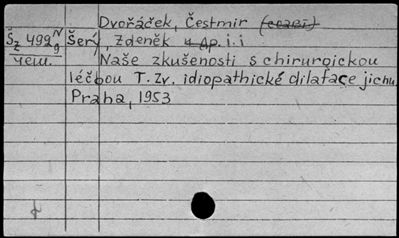 Dvořáček, Čestmir
Šz 499 N/9 Šerý, Zdeněk и др. i. i
чеш. Naše zkušenosti s chirurgickou
léčbou T. zv. idiopathické dilatace jichu.
Praha, 1953